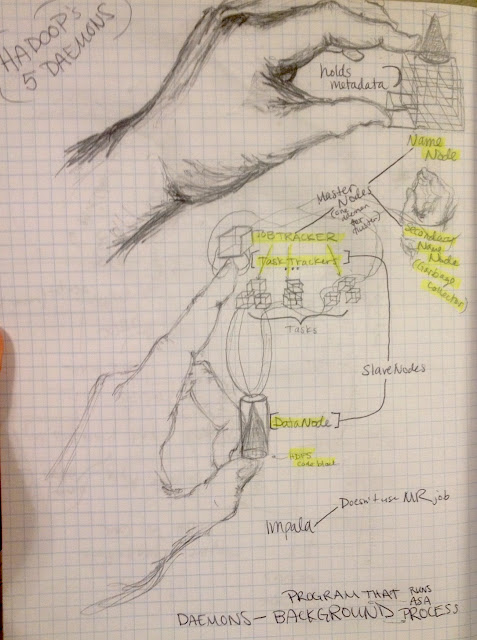 HADOOP'S
5 DAEMONS
holds
metadata
Name
Node
Master
Nodes
(one
daemon
per
cluster)
Secondary
Name
Node
(garbage
collector)
JOBTRACKER
TaskTrackers
...
Tasks
SlaveNodes
DataNode
HDFS
code block
Impala
Doesn't use MR job
DAEMONS - BACKGROUND PROCESS
PROGRAM THAT RUNS
AS A